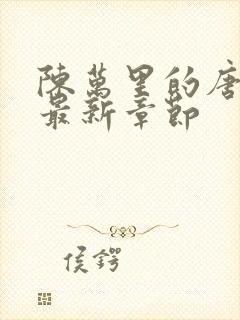 陳萬里的唐
最新章節
侯鍔